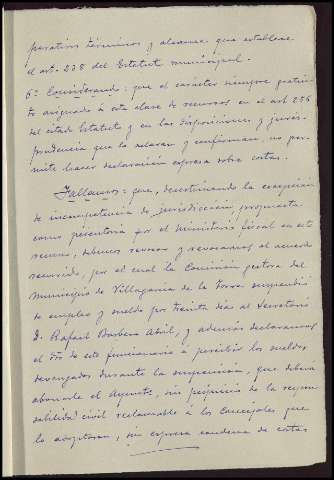 perativos términos y alcance que establece
el art. 238 del Estatuto municipal.
6º Considerando: que el carácter siempre gratui-
to asignado á esta clase de recursos en el art 256
del citado Estatuto y en las disposiciones y juris-
prudencia que lo aclaran y confirman, no per-
mite hacer declaración expresa sobre costas.
Fallamos: que, desestimando la excepción
de incompetencia de jurisdicción propuesta
como perentoria por el Ministerio fiscal en este
recurso, debemos revocar y revocamos el acuerdo
recurrido, por el cual la Comisión gestora del
Municipio de Villagarcia de la Torre suspendió
de empleo y sueldo por treinta días al Secretario
D. Rafael Barbero Abril, y además declaramos
el dro de este funcionario a percibir los sueldos
devengados durante la suspensión, que deberá
abonarle el Ayunto, sin perjuicio de la respon-
sabilidad civil reclamable á los Concejales que
lo adoptaron, sin expresa condena de costas